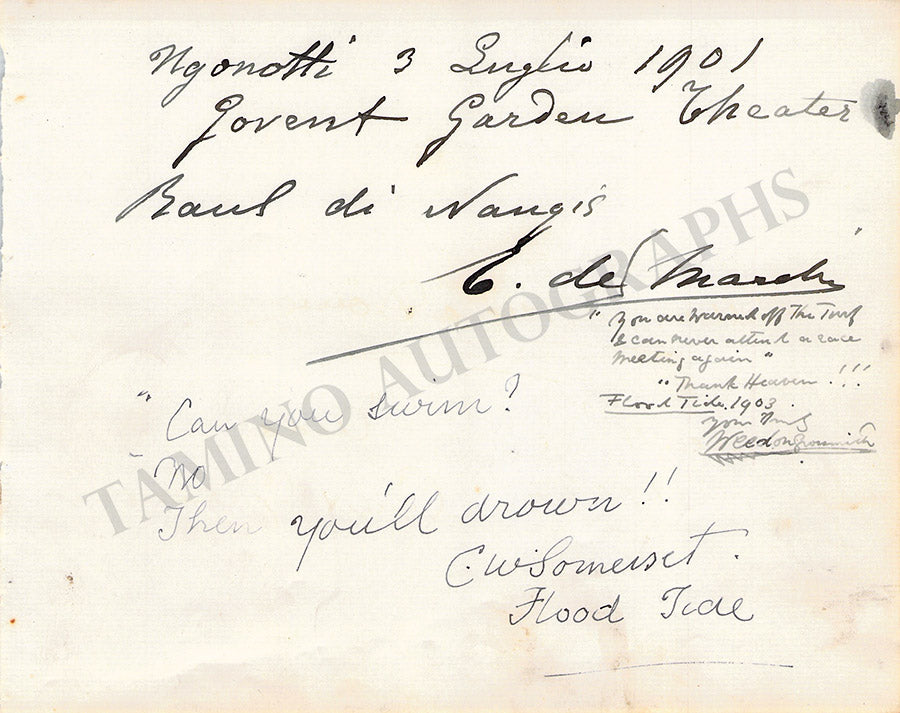 Ugonotti 3 Luglio 1901
Govent Garden Theater
Raul di Nangis
E. de Marchi
"You are warned off the Turf
& can never attend a race
meeting again"
"Thank Heaven!!!
Flood Tide. 1903.
Yours Truly
Weedon Grossmith
"Can you swim?
"No
Then you'll drown!!
C. W. Somerset.
Flood Tide
TAMINO AUTOGRAPHS